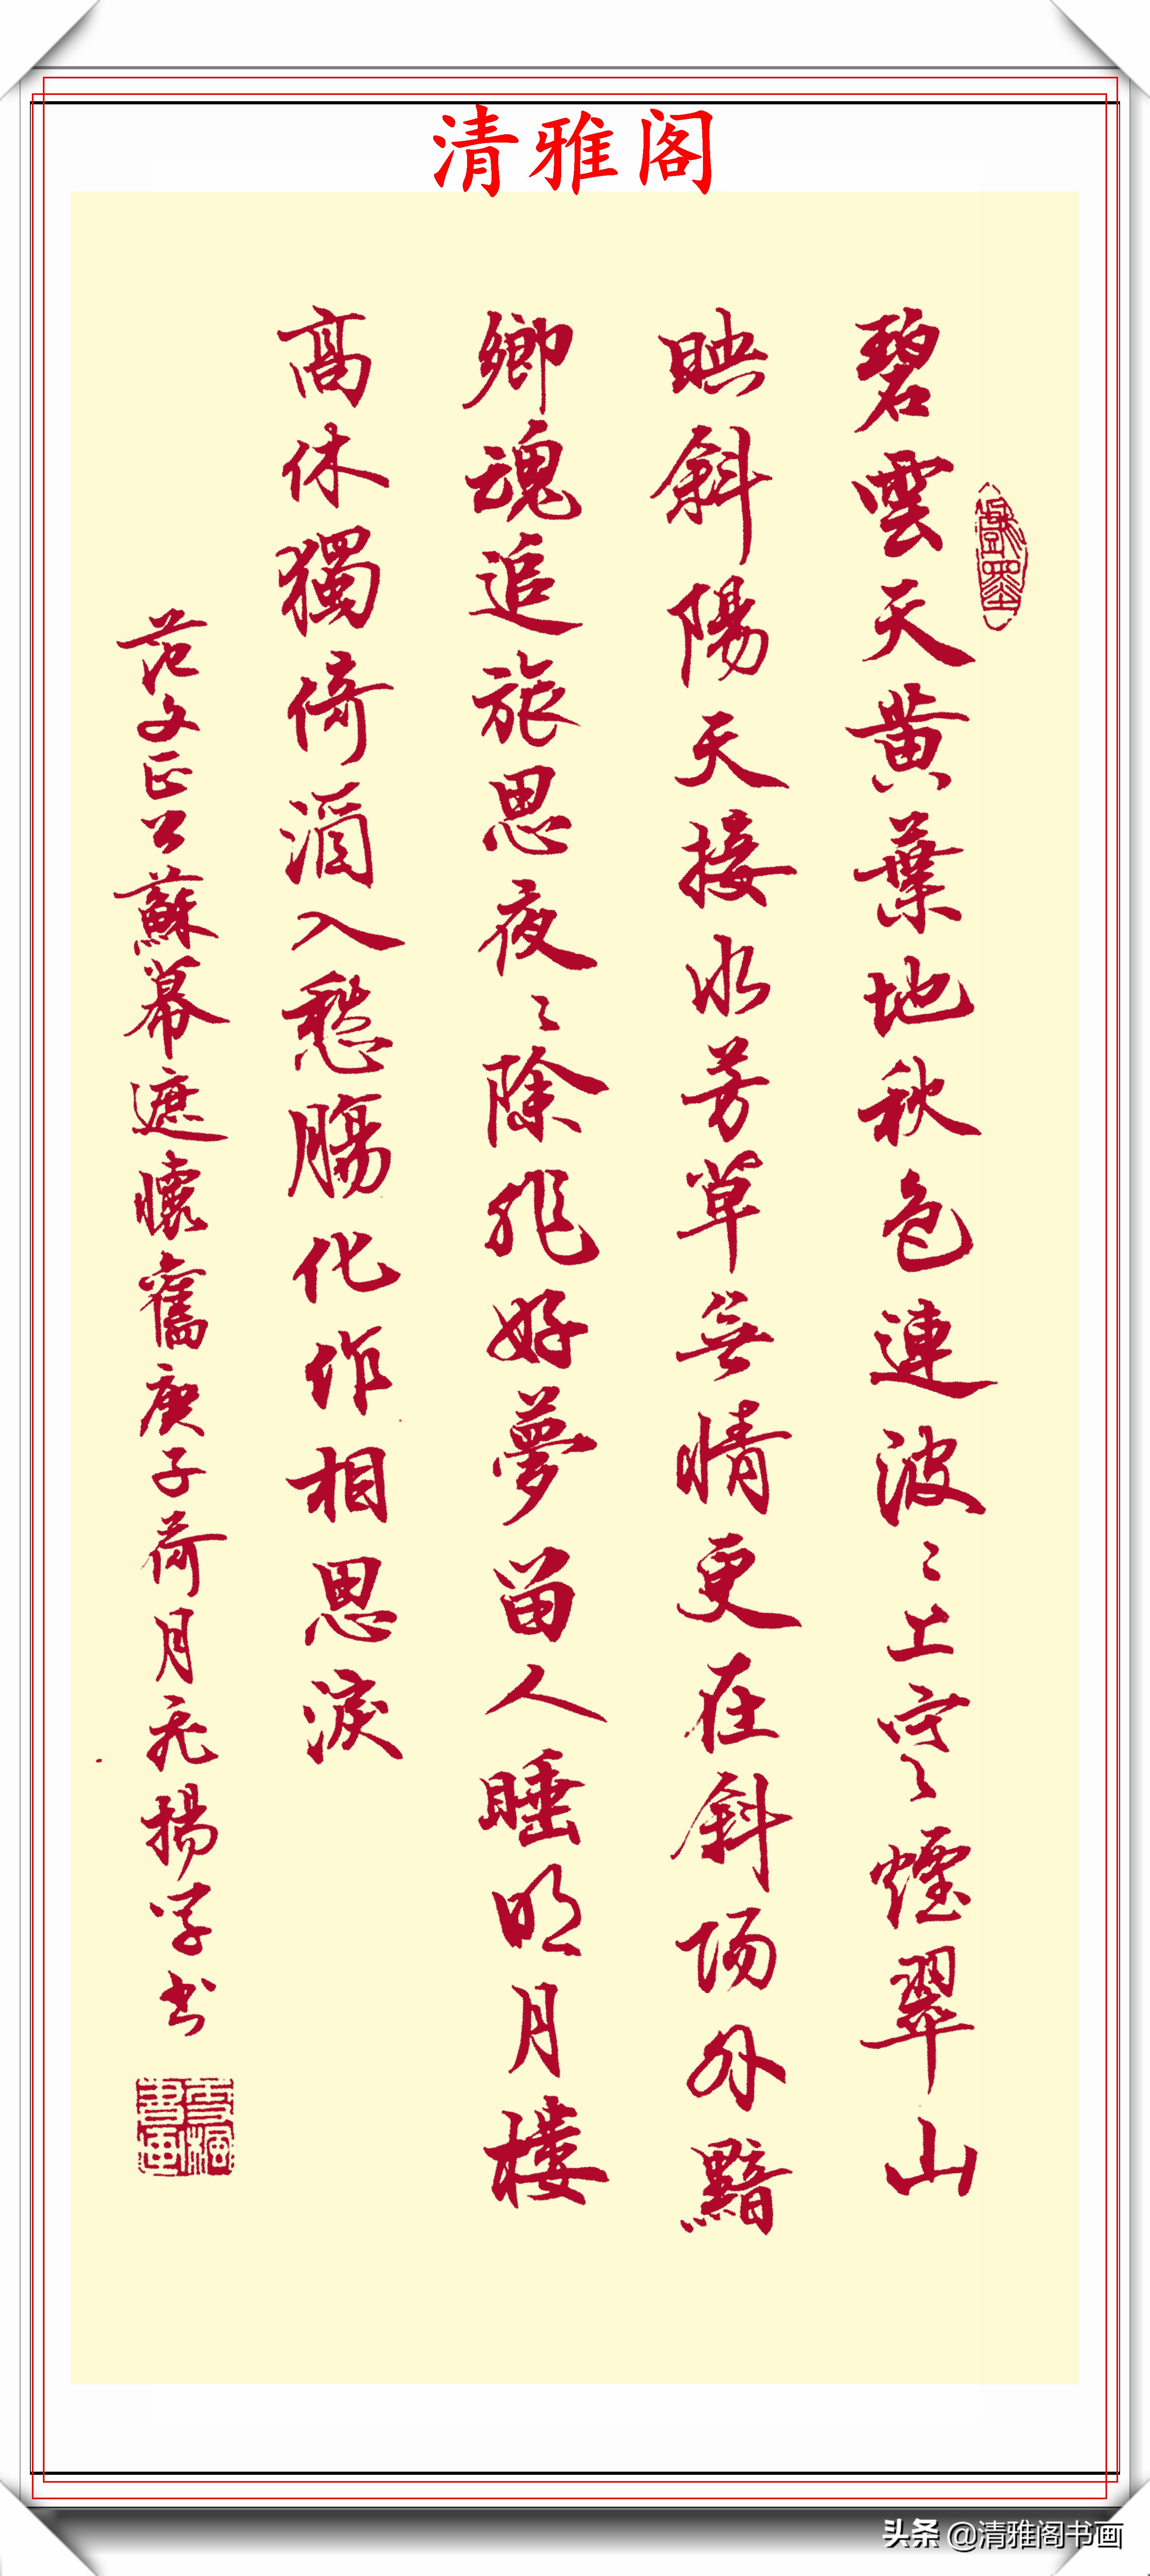 清雅阁
碧雲天黄葉地秋色連波々上寒煙翠山
映斜陽天接水芳草無情更在斜阳外黯
鄉魂追旅思夜々除非好夢留人睡明月樓
髙休獨倚酒入愁腸化作相思淚
范文正公蘇幕遮懷舊庚子荷月揚学书
头条 @清雅阁书画